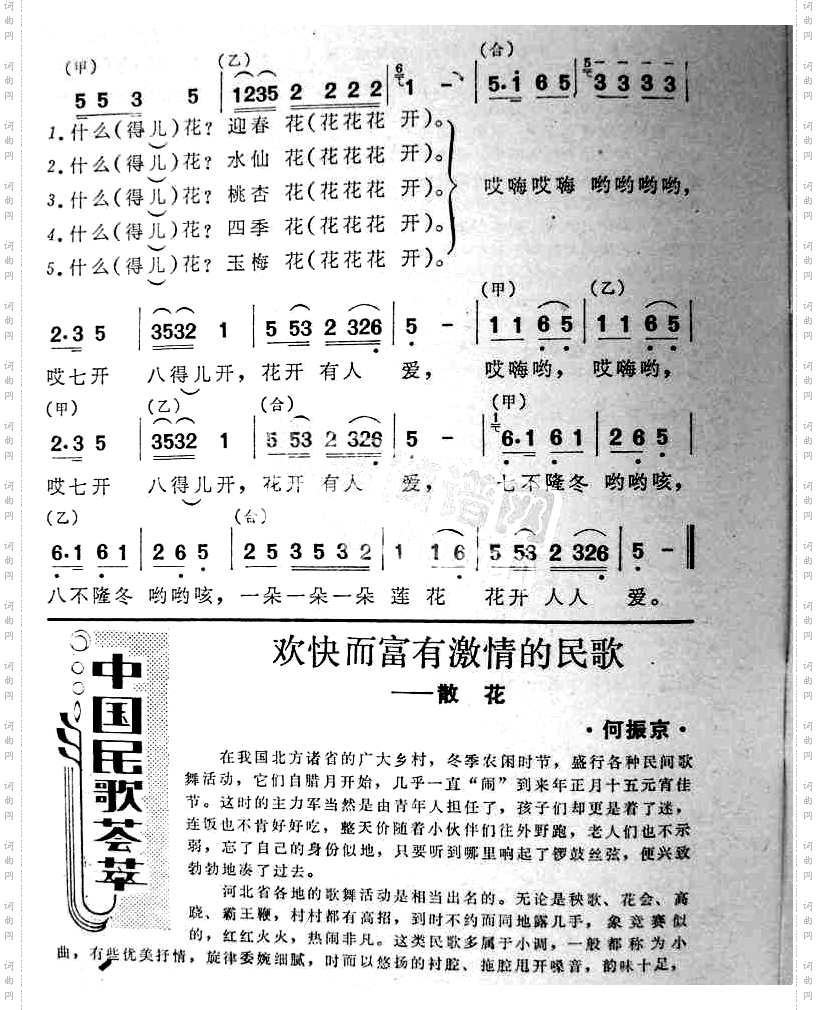 (甲) (乙) (合)
5 5 3 5 | 1235 2 2 2 2 | 6 1 - | 5·1 6 5 | 5 3 3 3 3 |
1.什么(得儿)花？迎春 花(花花花 开)。
2.什么(得儿)花？水仙 花(花花花 开)。
3.什么(得儿)花？桃杏 花(花花花 开)。
4.什么(得儿)花？四季 花(花花花 开)。
5.什么(得儿)花？玉梅 花(花花花 开)。
哎嗨哎嗨 哟哟哟哟，
(甲) (乙)
2·3 5 | 3532 1 | 5 53 2 326 | 5 - | 1 1 6 5 | 1 1 6 5 |
哎七开 八得儿开，花开 有人 爱， 哎嗨哟，哎嗨哟，
(甲) (乙) (合) (甲)
2·3 5 | 3532 1 | 5 53 2 326 | 5 - | 1 6·1 6 1 | 2 6 5 |
哎七开 八得儿开，花开 有人 爱， 七不隆冬 哟哟咳，
(乙) (合)
6·1 6 1 | 2 6 5 | 2 5 3 5 3 2 | 1 1 6 | 5 53 2 326 | 5 - ‖
八不隆冬 哟哟咳，一朵一朵一朵 莲 花 花开 人人 爱。
中国民歌荟萃
欢快而富有激情的民歌
——散 花
·何振京·
在我国北方诸省的广大乡村，冬季农闲时节，盛行各种民间歌
舞活动，它们自腊月开始，几乎一直“闹”到来年正月十五元宵佳
节。这时的主力军当然是由青年人担任了，孩子们却更是着了迷，
连饭也不肯好好吃，整天价随着小伙伴们往外野跑，老人们也不示
弱，忘了自己的身份似地，只要听到哪里响起了锣鼓丝弦，便兴致
勃勃地凑了过去。
河北省各地的歌舞活动是相当出名的。无论是秧歌、花会、高
跷、霸王鞭，村村都有高招，到时不约而同地露几手，象竞赛似
的，红红火火，热闹非凡。这类民歌多属于小调，一般都称为小
曲，有些优美抒情，旋律委婉细腻，时而以悠扬的衬腔、拖腔甩开嗓音，韵味十足，